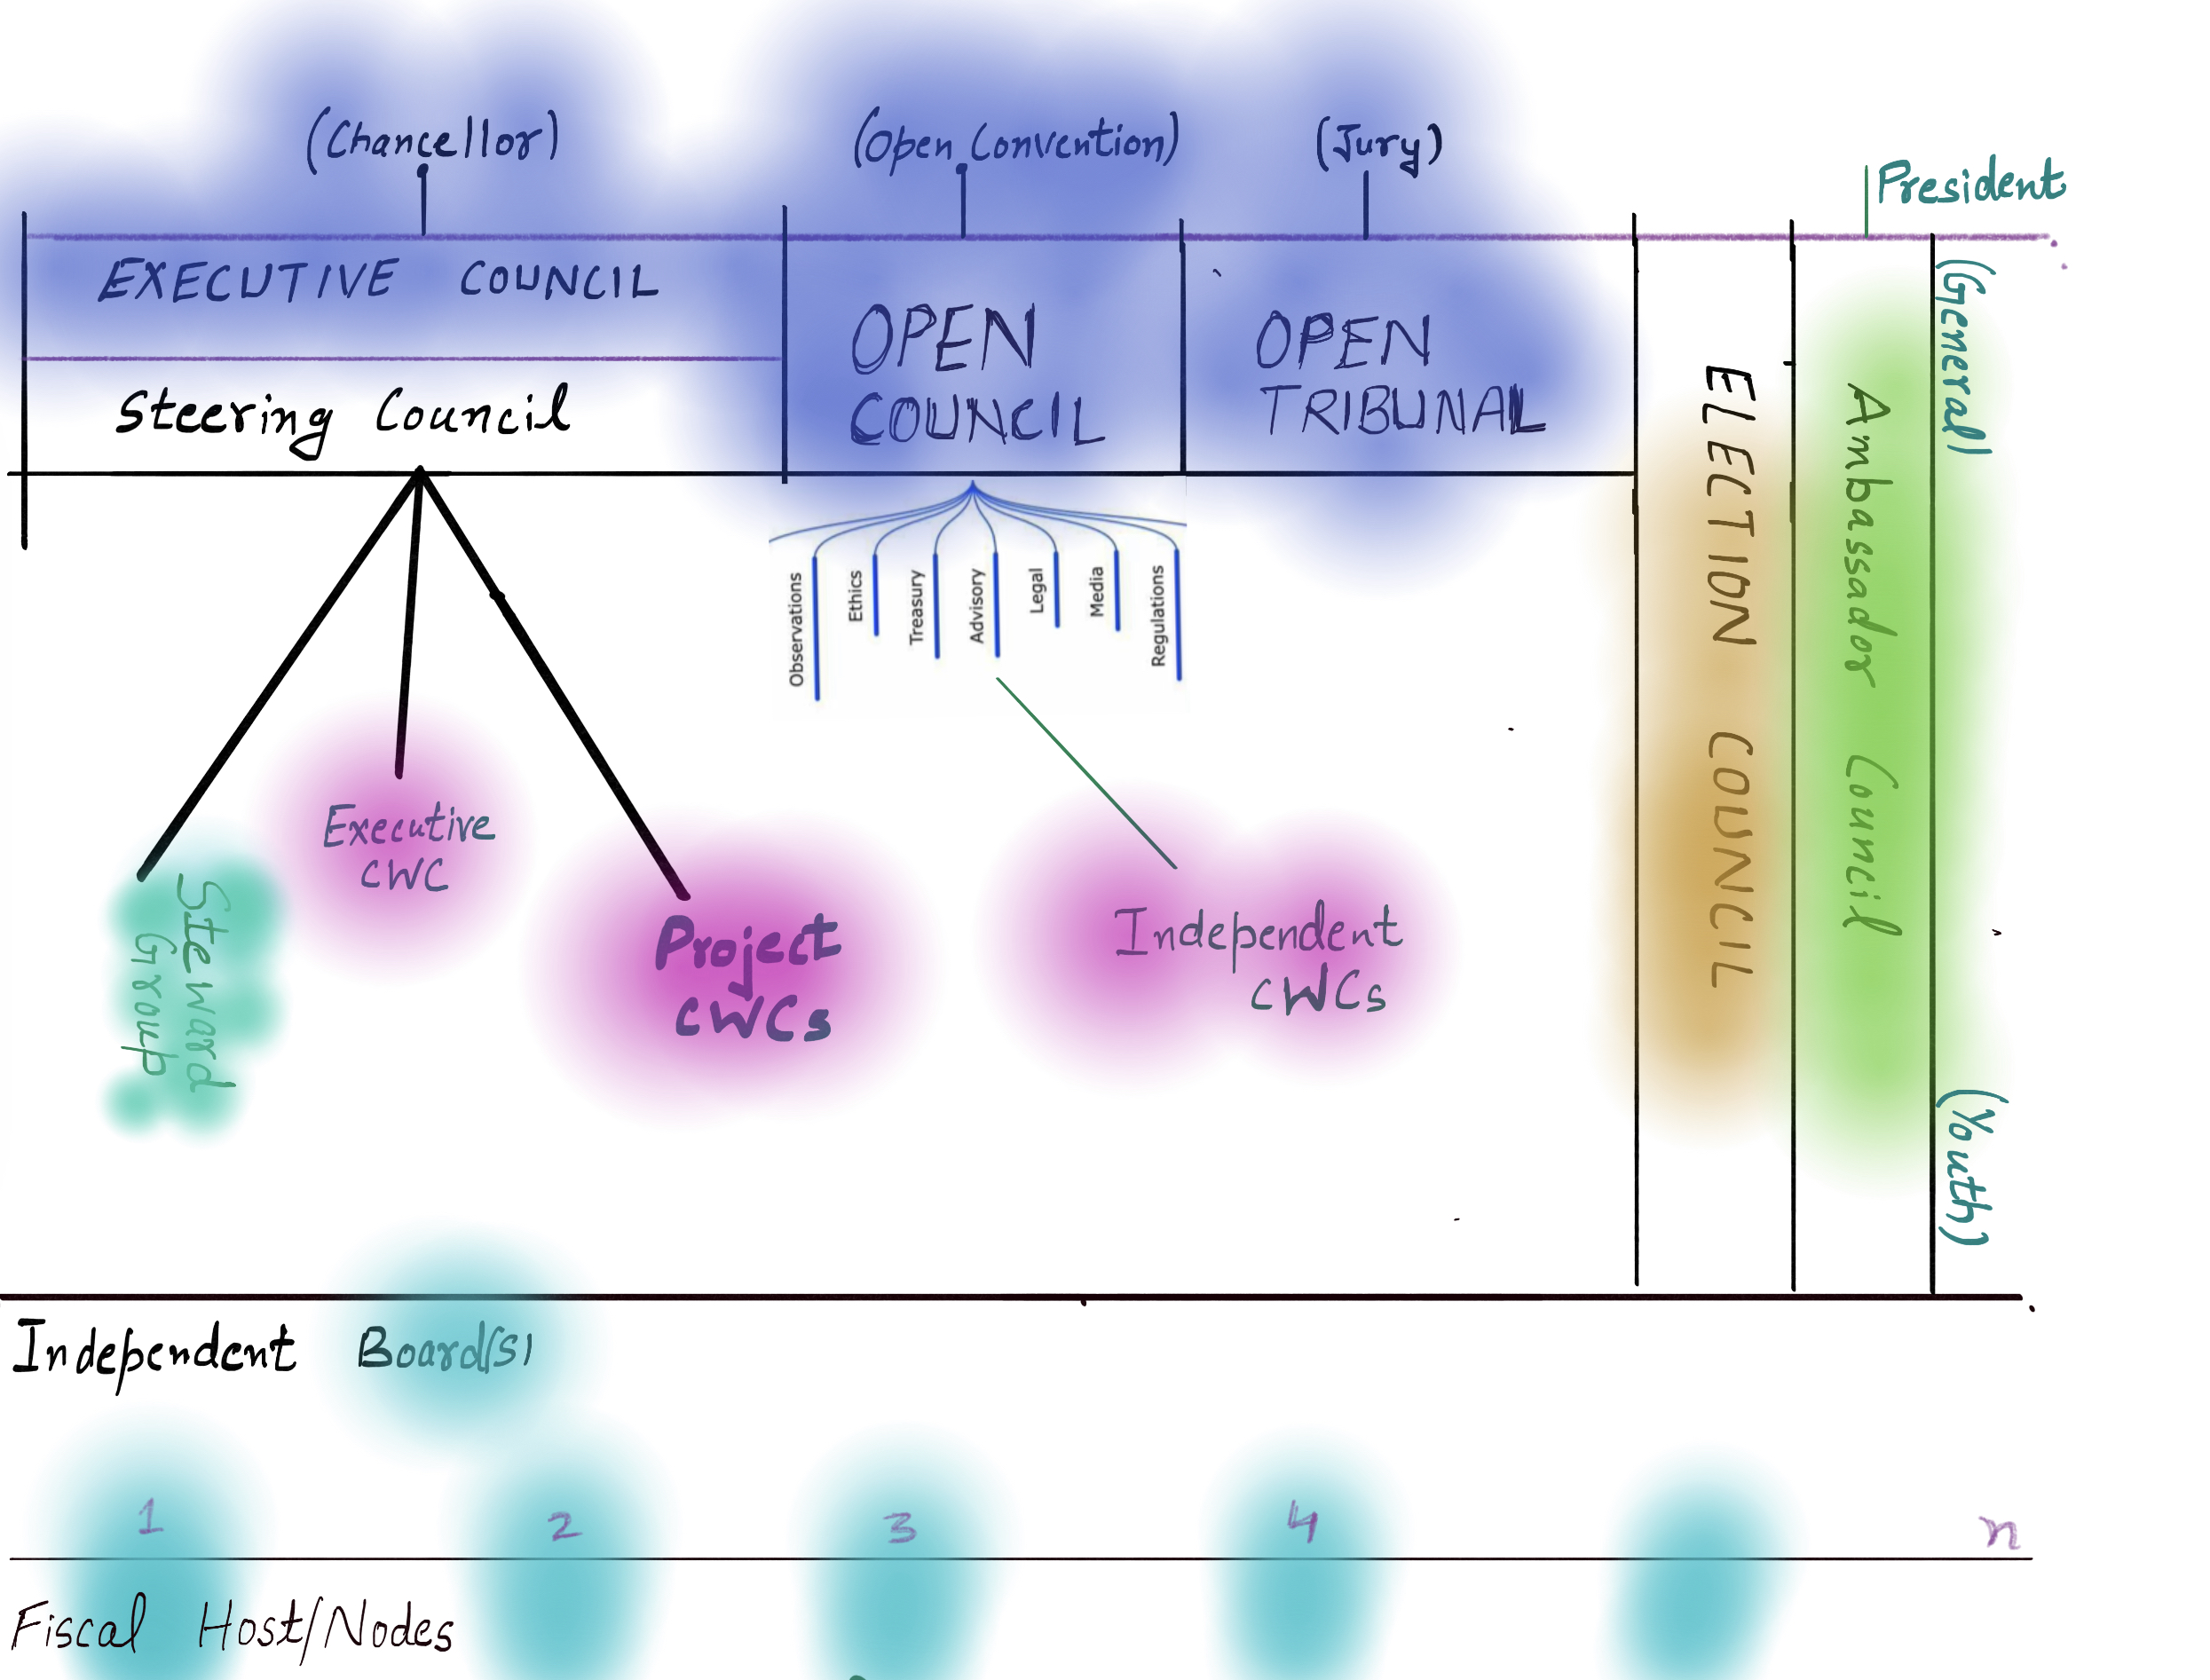 (Chancellor)
(Open Convention)
(Jury)
President
EXECUTIVE COUNCIL
Steering Council
OPEN
COUNCIL
OPEN
TRIBUNAL
ELECTION COUNCIL
Ambassador Council
(General)
(Youth)
Observations
Ethics
Treasury
Advisory
Legal
Media
Regulations
Steward
Group
Executive
CWC
Project
CWCs
Independent
CWCs
Independent Board(s)
1 2 3 4 n
Fiscal Host/Nodes